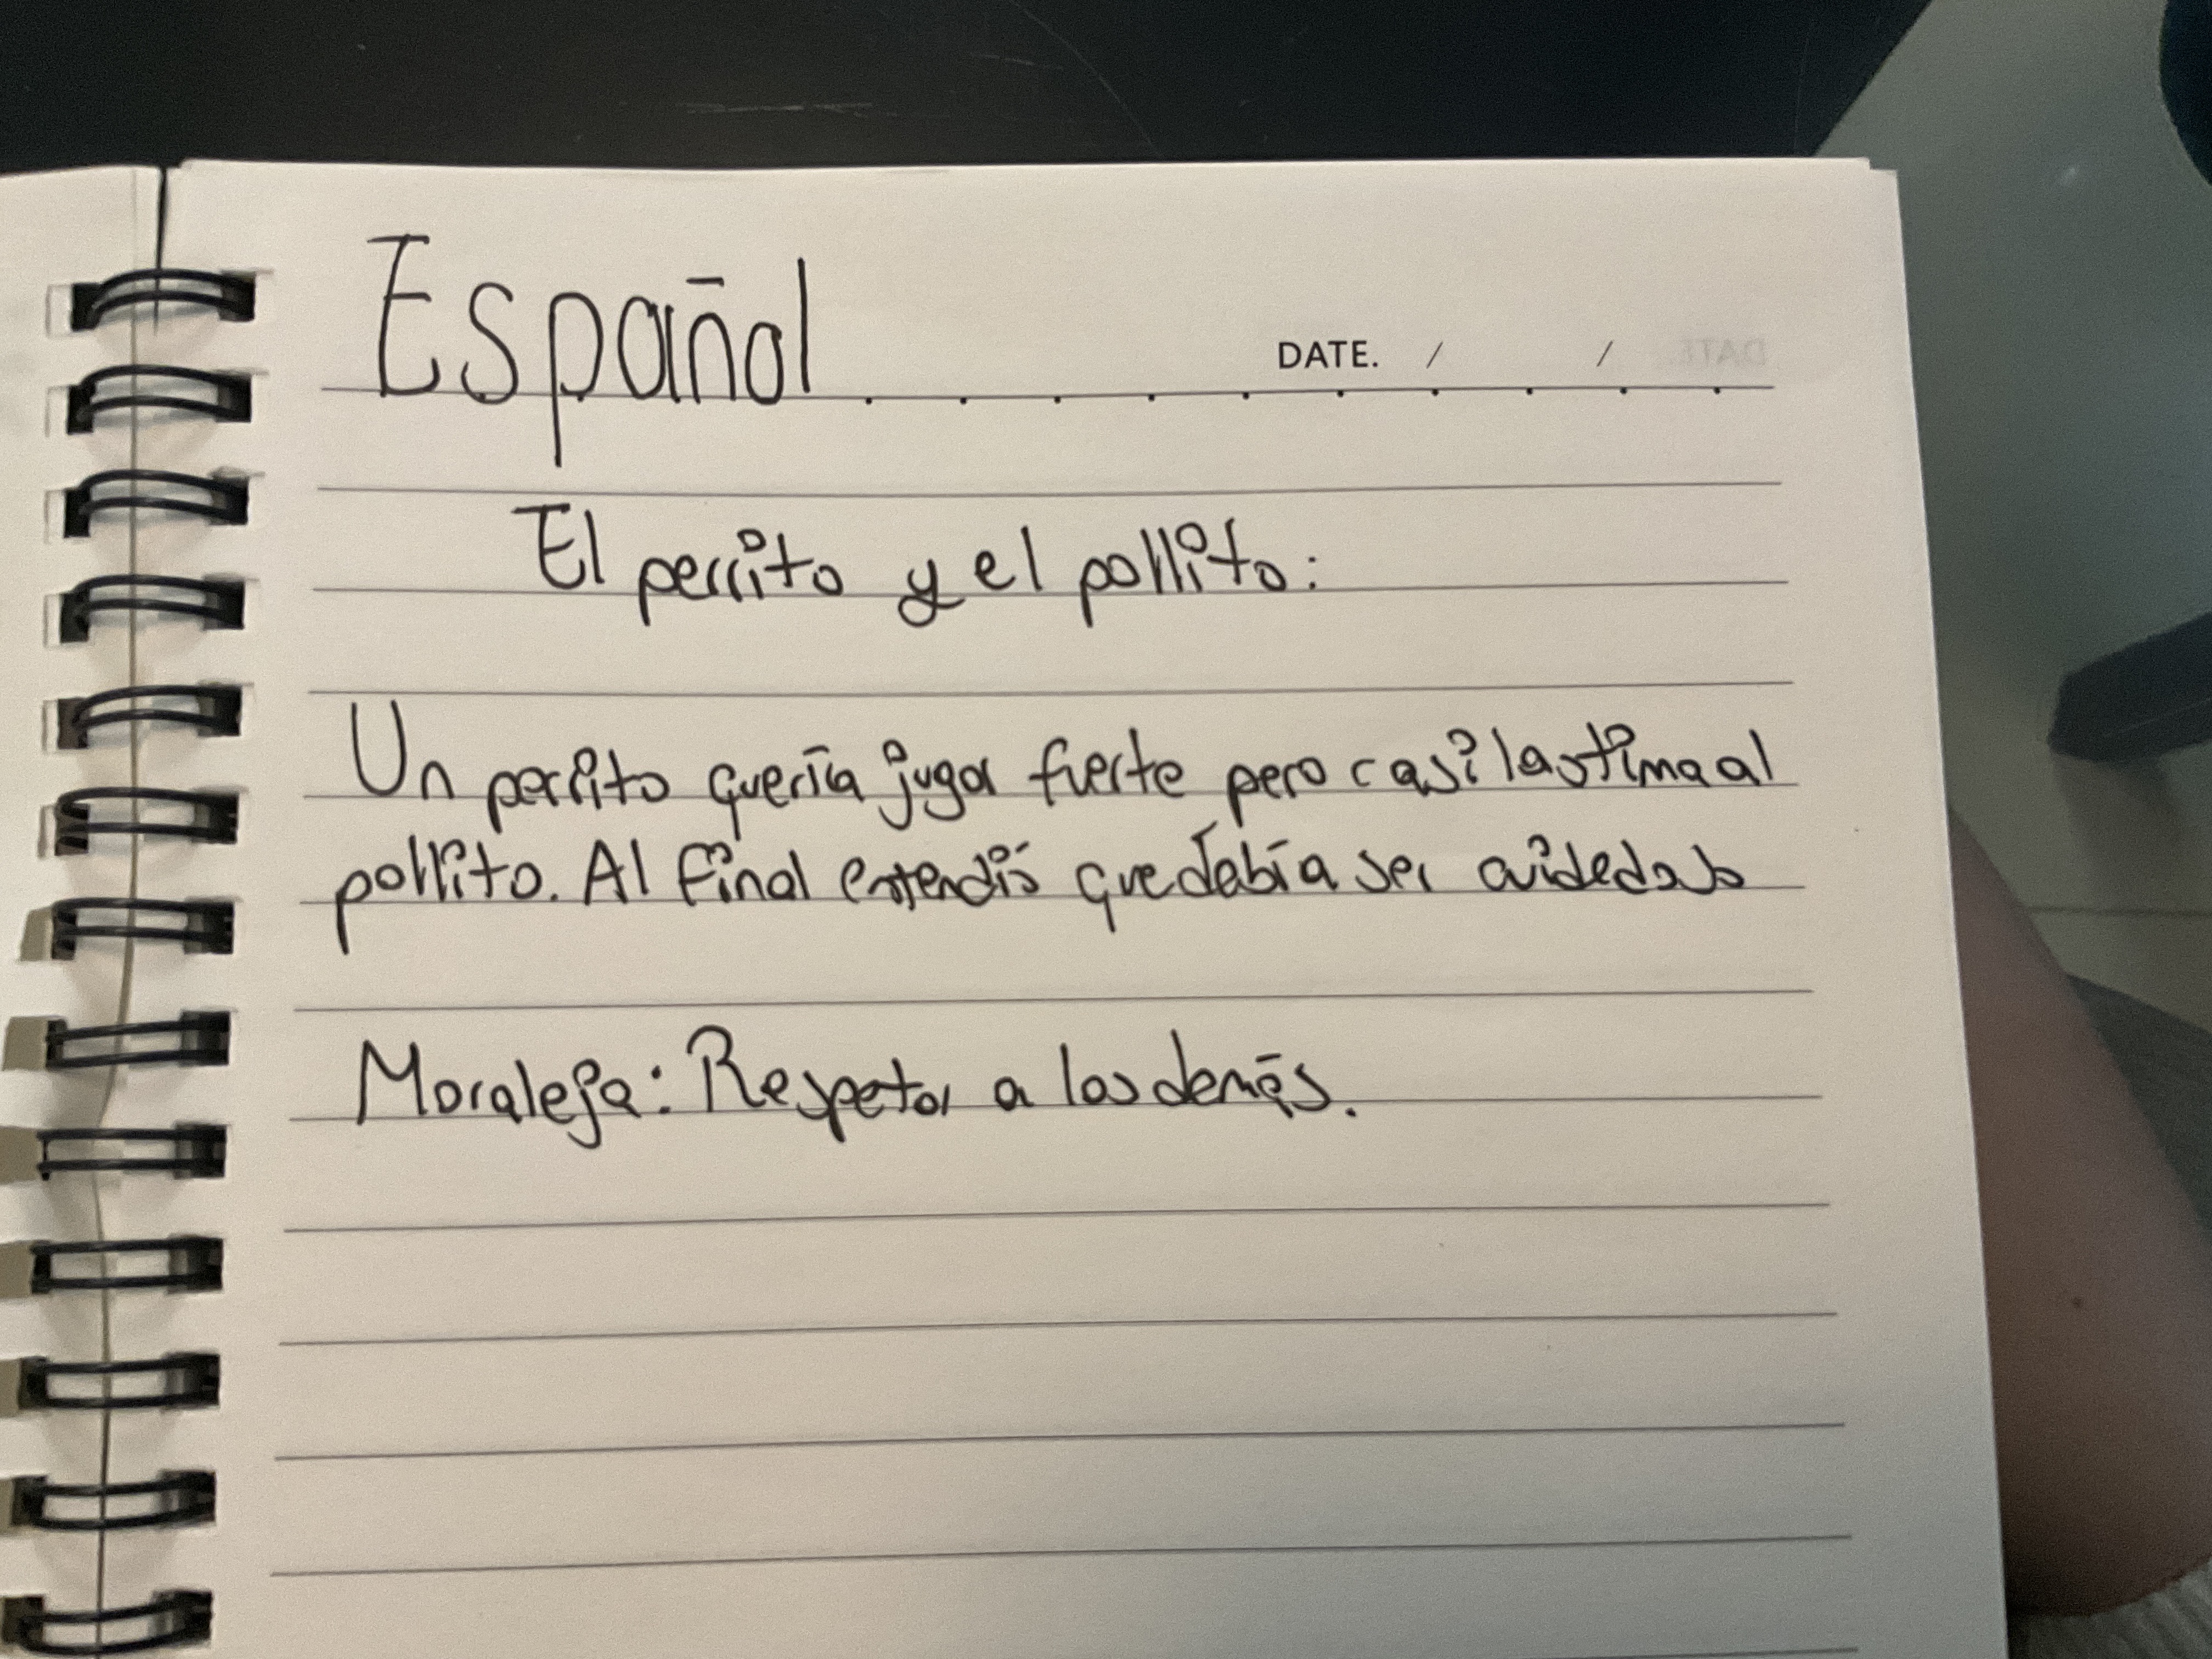 Español
DATE. / /
El perrito y el pollito:
Un perrito quería jugar fuerte pero casi lastima al
pollito. Al final entendió que debía ser cuidadoso
Moraleja: Respetar a los demás.